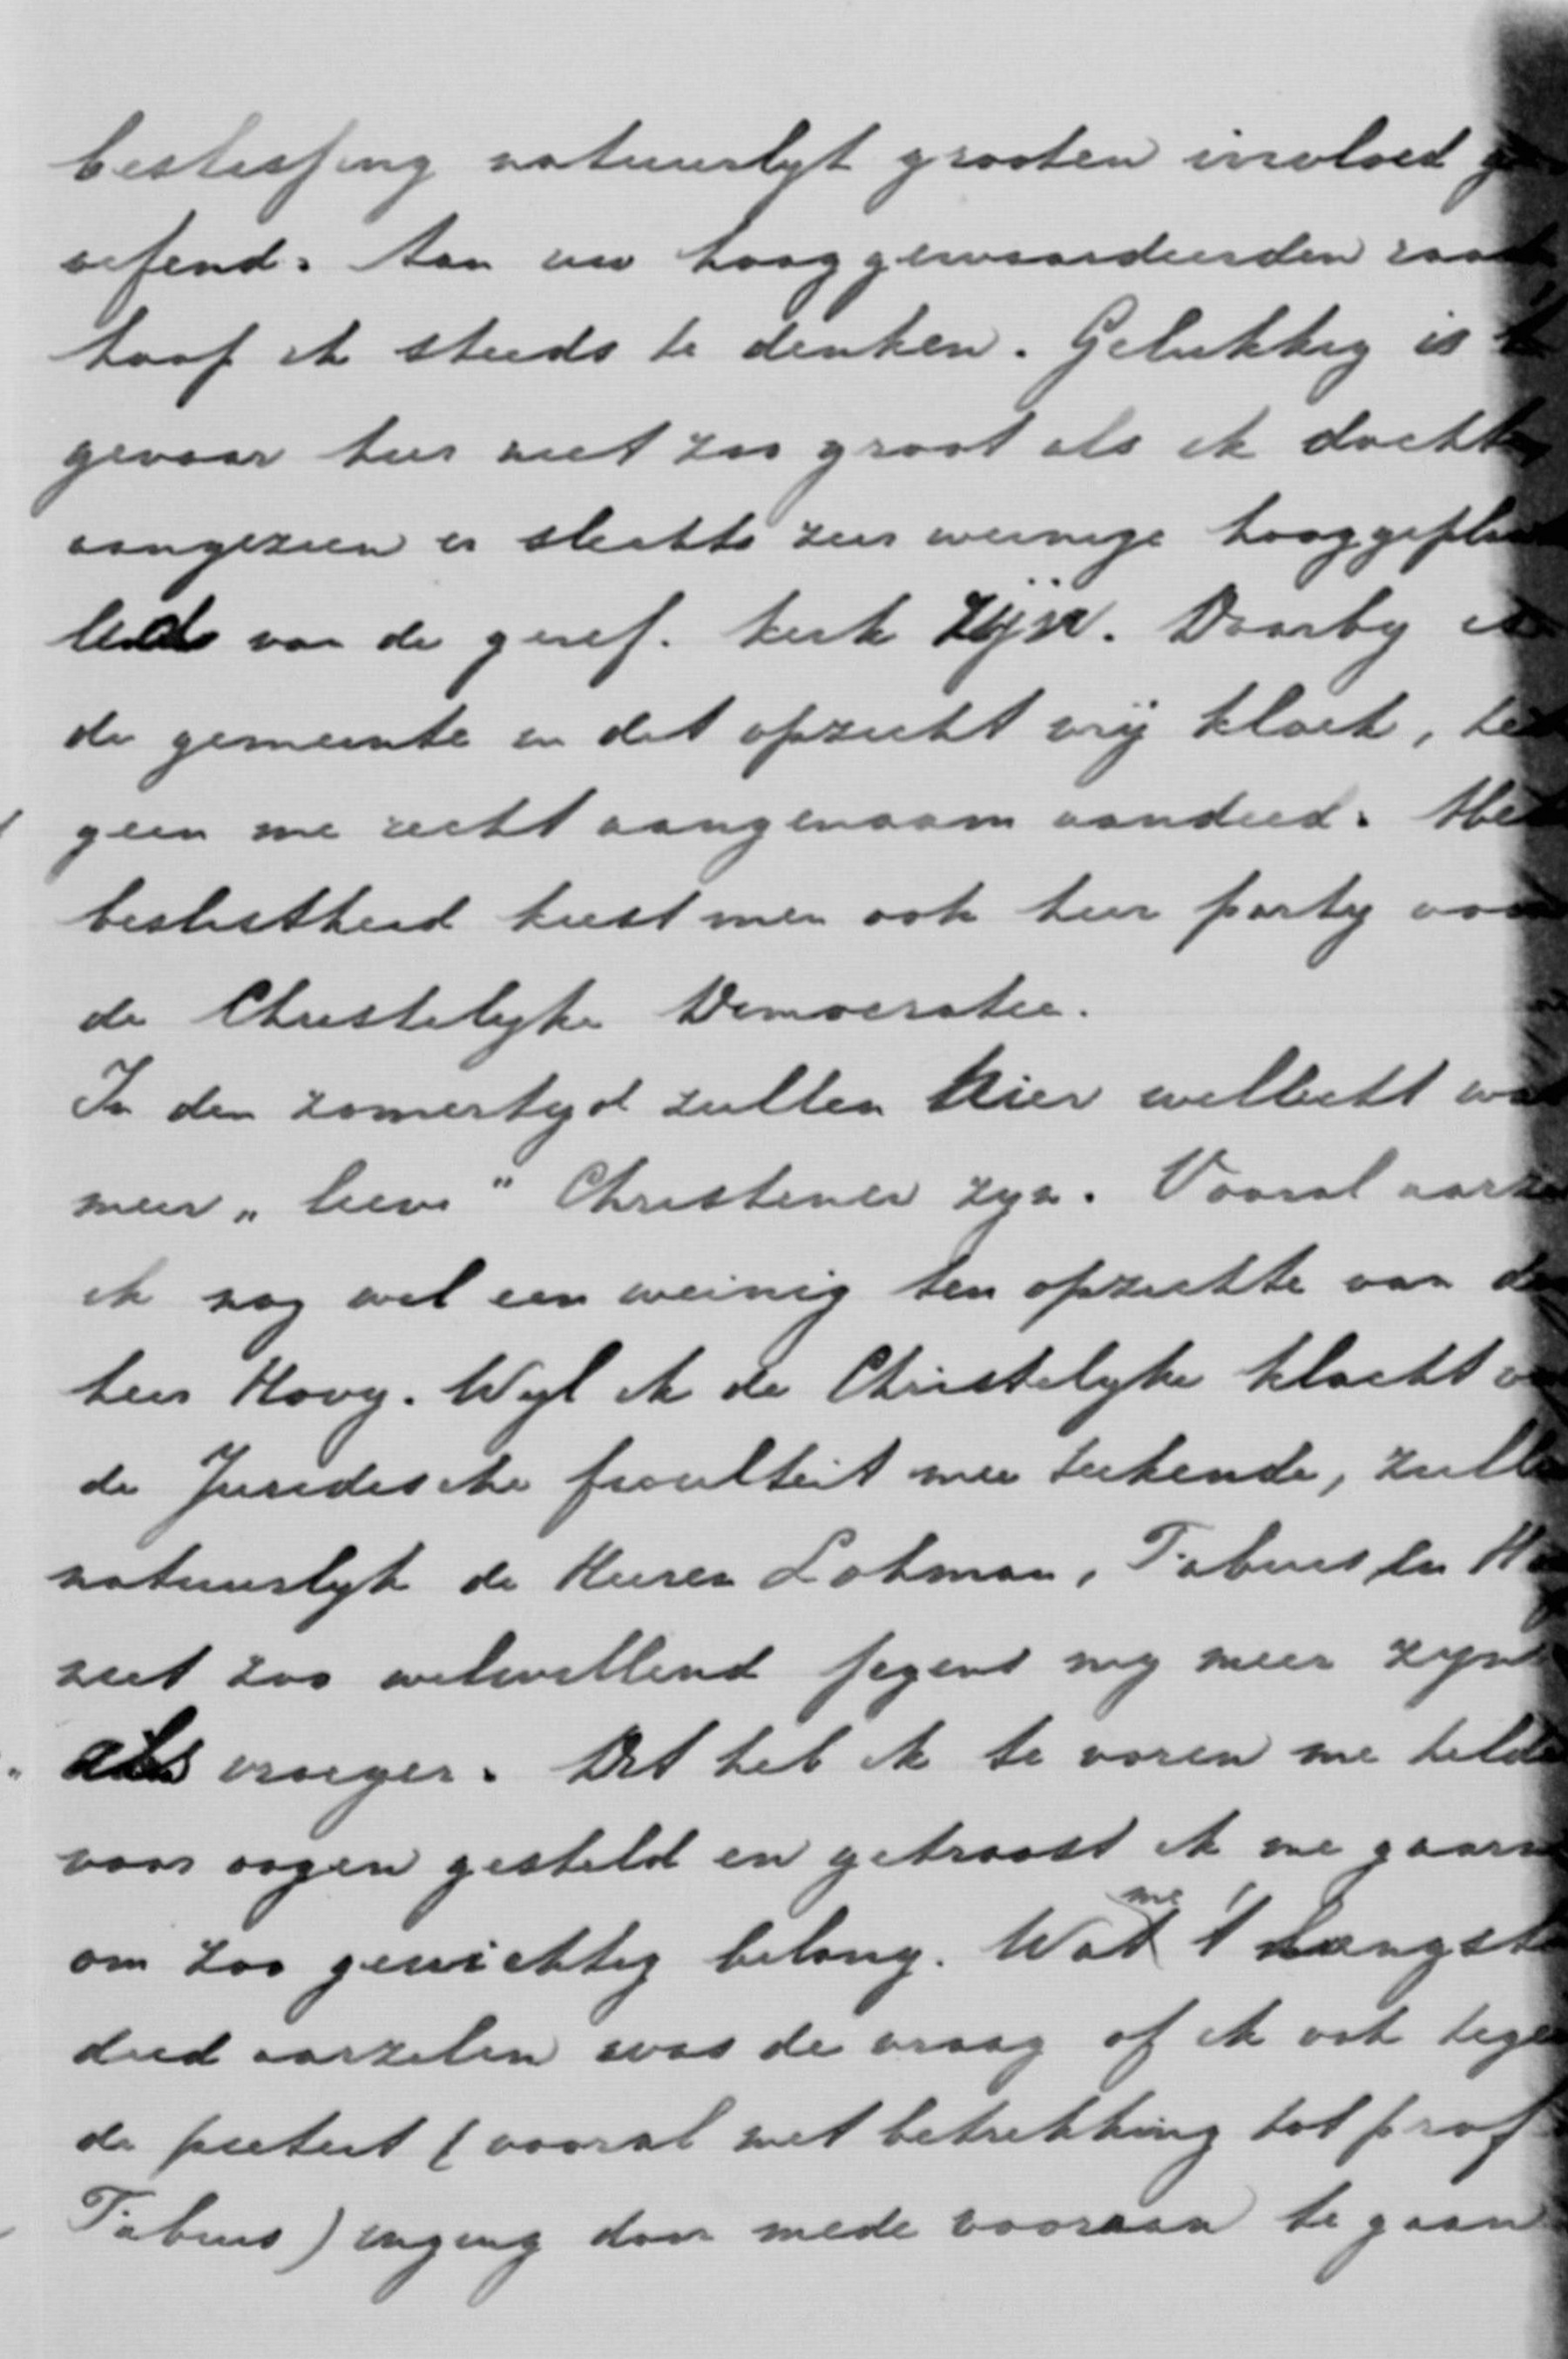 beslissing natuurlyk grooten invloed ge
oefend. Aan uw hooggewaardeerden raad
hoop ik steeds te denken. Gelukkig is 't
gevaar hier niet zoo groot als ik dacht,
aangezien er slechts zeer weinige hooggepla
leds van de geref. kerk zijn. Daarby is
de gemeente in dit opzicht vrij kloek, het
geen me recht aangenaam aandeed. Met
beslistheid kiest men ook hier party voor
de Christelyke Democratie.
In den zomertyd zullen hier wellicht wat
meer „lieve" Christenen zyn. Vooral aarze
ik nog wel een weinig ten opzichte van de
heer Hovy. Wyl ik de Christelyke klacht v
de Juridische faculteit mee teekende, zulle
natuurlyk de Heeren Lohman, Fabius en Ho
niet zoo welwillend jegens my meer zyn
als vroeger. Dit heb ik te voren me helde
voor oogen gesteld en getroost ik me gaarn
om zoo gewichtig belang. Wat me 't langst
deed aarzelen was de vraag of ik ook tege
de pieteit (vooral met betrekking tot prof
Fabius) inging door mede vooraan te gaan